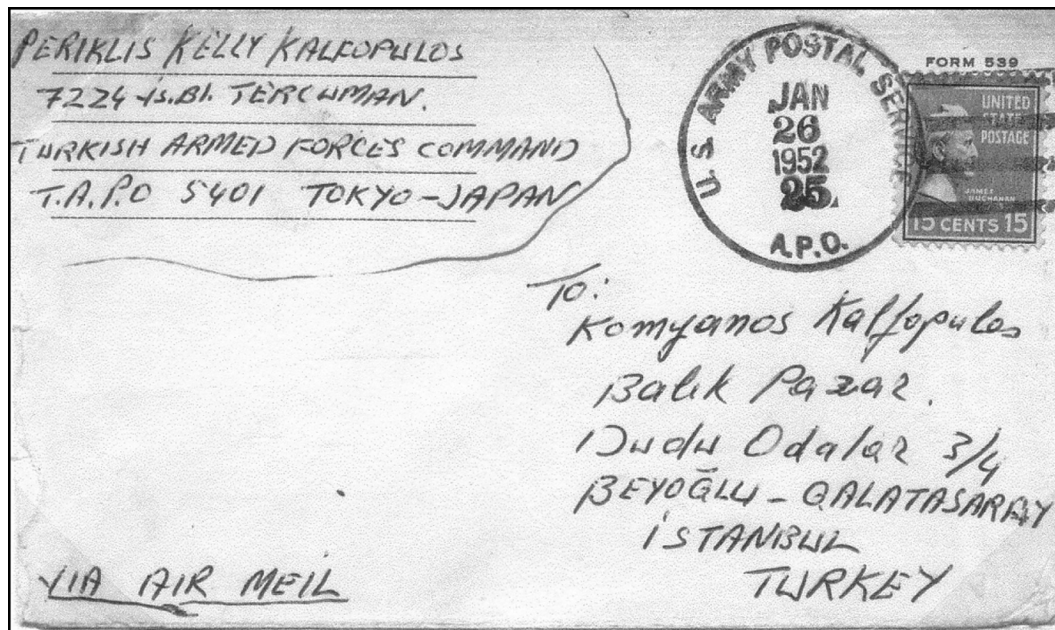 PERIKLIS KELLY KALFOPULOS
7224 is.Bl. TERCUMAN.
TURKISH ARMED FORCES COMMAND
T.A.P.O 5401 TOKYO-JAPAN
U.S. ARMY POSTAL SERVICE
JAN
26
1952
25
A.P.O.
FORM 539
UNITED
STATES
POSTAGE
JAMES
BUCHANAN
15 CENTS 15
To:
Komyanos Kalfopulos
Balık Pazar.
Dudu Odalar 3/4
BEYOĞLU - GALATASARAY
iSTANBUL
TURKEY
VIA AIR MEIL